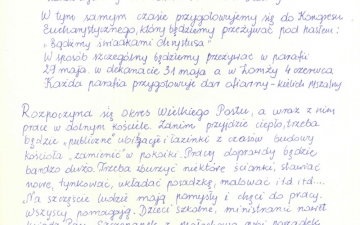 W tym samym czasie przygotowujemy się do Kongresu
Eucharystycznego, który będziemy przeżywać pod hasłem:
"Bądźmy świadkami Chrystusa"
W sposób szczególny będziemy przeżywać w parafii
29 maja, w dekanacie 31 maja a w Łomży 4 czerwca
Każda parafia przygotowuje dar ofiarny - kielich mszalny
Rozpoczyna się okres Wielkiego Postu, a wraz z nim
prace w dolnym kościele. Zanim przyjdzie ciepło, trzeba
będzie "publiczne" ubikacje i łazienki z czasów budowy
kościoła "zamienić" w pokoiki. Pracy doprawdy będzie
bardzo dużo. Trzeba zburzyć niektóre ścianki, stawiać
nowe, tynkować, układać posadzkę, malować itd itd...
Na szczęście ludzie mają pomysły i chęci do pracy.
Wszyscy pomagają. Dzieci szkolne, ministranci nawet